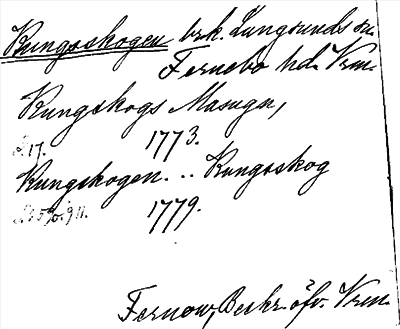 Kungsskogen brk. Lungsunds sn.
Fernebo hd. Vrm.
Kungskogs Masugn,
s. 17. 1773.
Kungskogen. .. Kungsskog
1779.
Fernow, Beskr. öfv. Vrm.